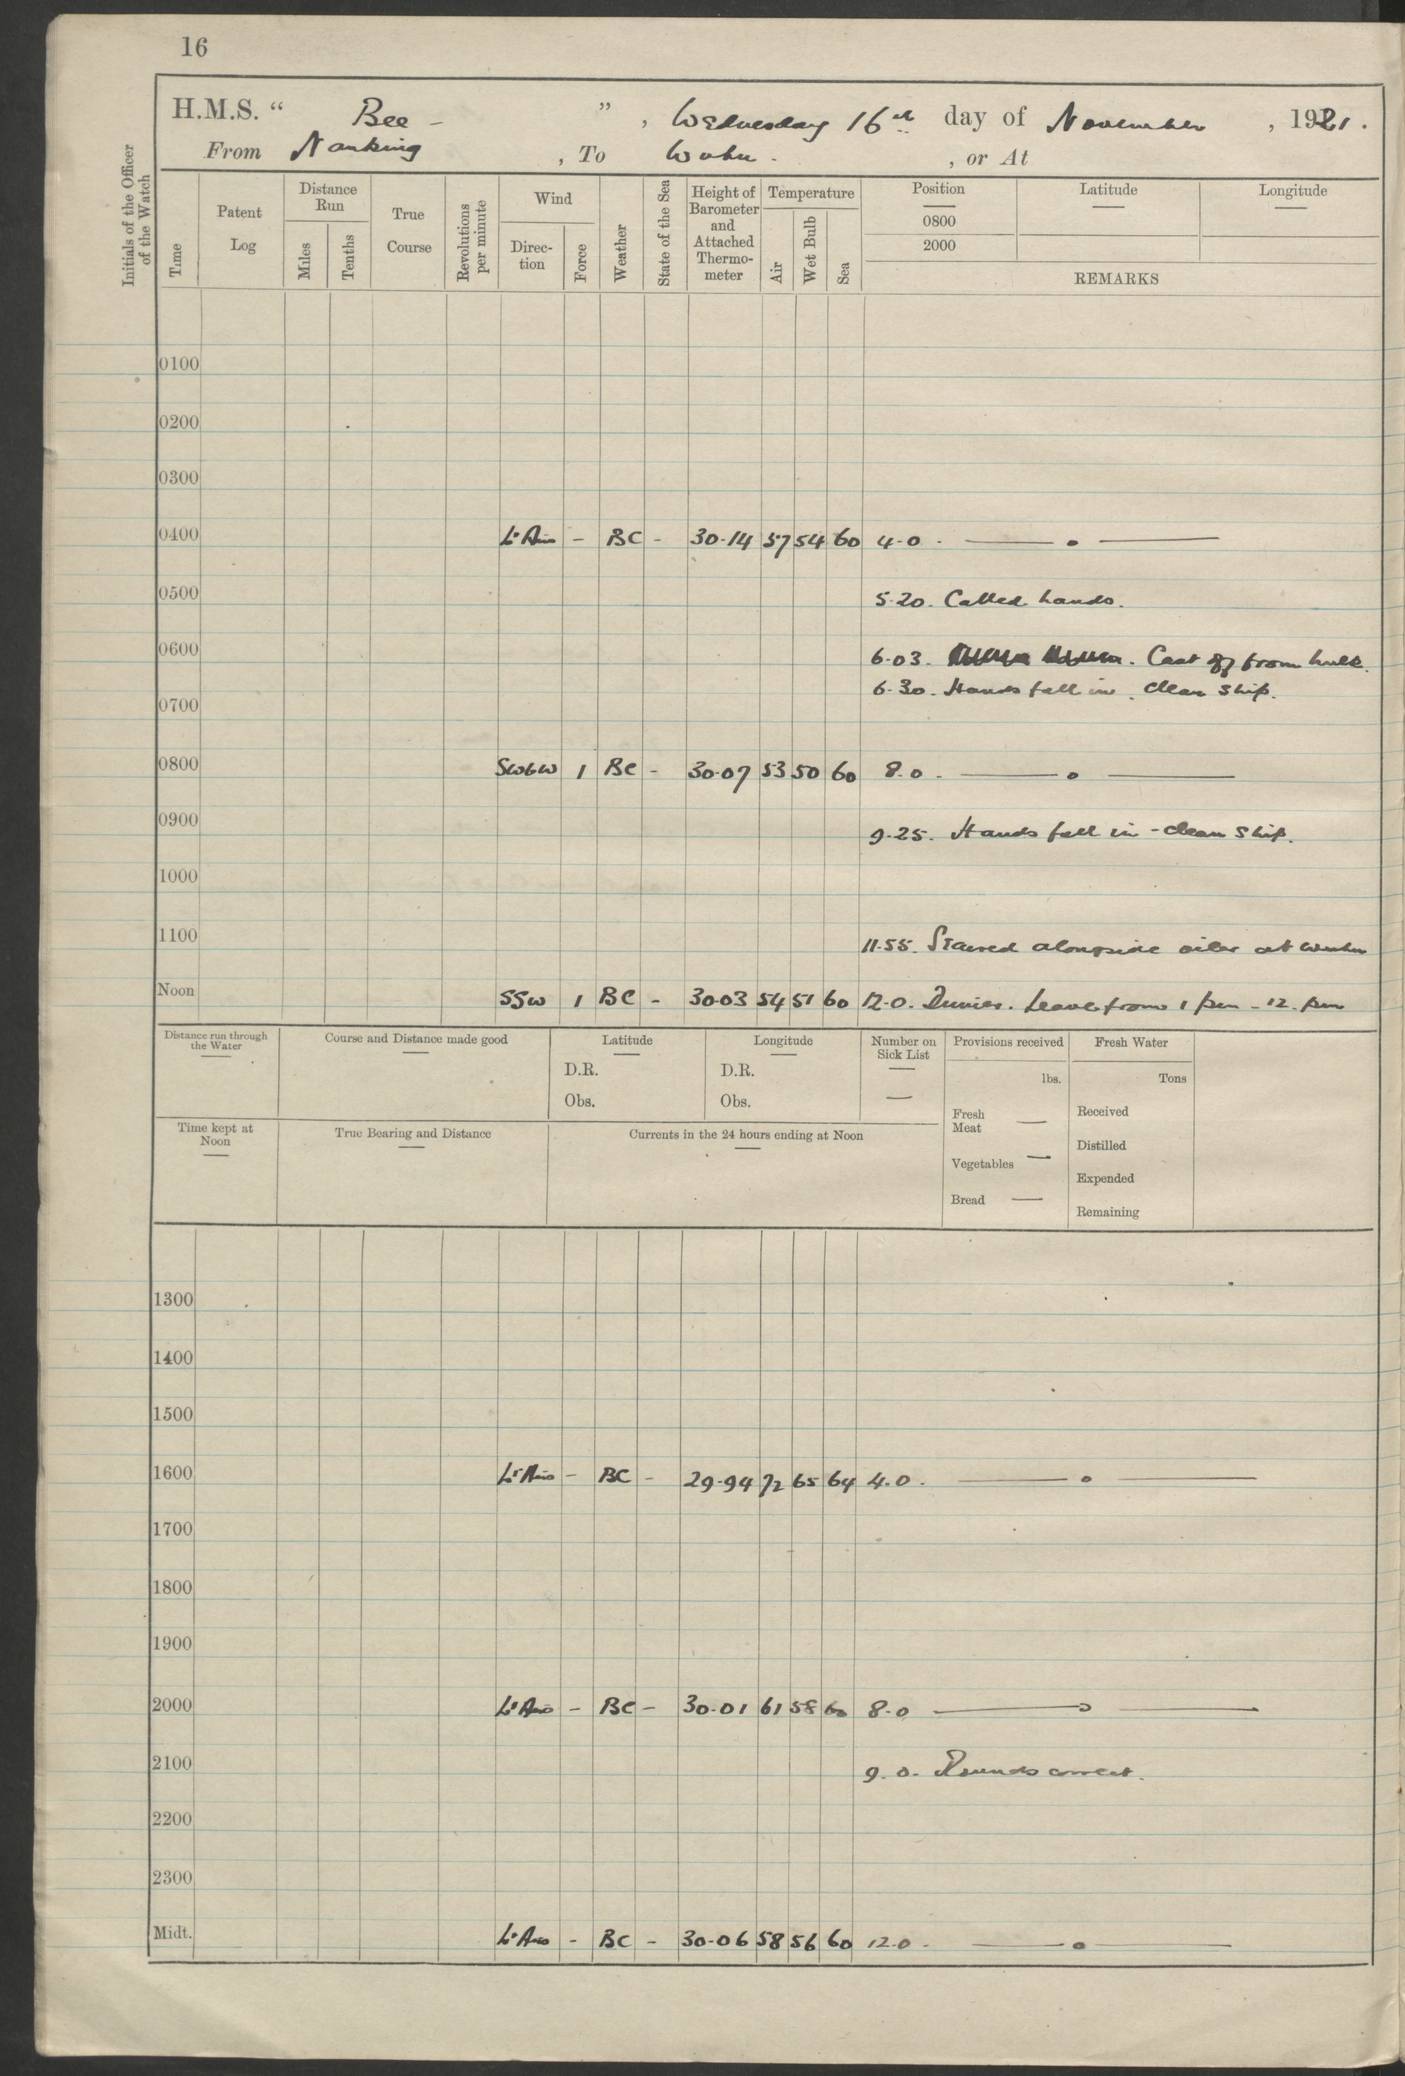 16
H.M.S. " Bee - ", Wednesday 16th day of November, 1921.
From Nanking, To Wuhu. , or At
Initials of the Officer of the Watch
Time
Patent Log
Distance Run
Miles
Tenths
True Course
Revolutions per minute
Wind
Direc-tion
Force
Weather
State of the Sea
Height of Barometer and Attached Thermo-meter
Temperature
Air
Wet Bulb
Sea
Position
0800
2000
Latitude
Longitude
REMARKS
0100
0200
0300
0400 Lt Airs - BC - 30.14 57 54 60 4.0 . — o —
0500
5.20. Called hands.
0600
6.03. Cast off from hulk.
6.30. Hands fell in. Clean Ship.
0700
0800 SWbW 1 BC - 30.07 53 50 60 8.0 - — o —
0900
9.25. Hands fell in - clean Ship.
1000
1100
11.55. Secured alongside oiler at Wuhu
Noon SSW 1 BC - 30.03 54 51 60 12.0. Dinner. Leave from 1 pm - 12. pm
Distance run through the Water
Course and Distance made good
Latitude
D.R.
Obs.
Longitude
D.R.
Obs.
Number on Sick List
—
Provisions received
lbs.
Fresh Meat —
Vegetables —
Bread —
Fresh Water
Tons
Received
Distilled
Expended
Remaining
Time kept at Noon
True Bearing and Distance
Currents in the 24 hours ending at Noon
1300
1400
1500
1600 Lt Airs - BC - 29.94 72 65 64 4.0 . — o —
1700
1800
1900
2000 Lt Airs - BC - 30.01 61 58 60 8.0 — o —
2100
9.0. Rounds correct.
2200
2300
Midt. Lt Airs - BC - 30.06 58 56 60 12.0 - — o —